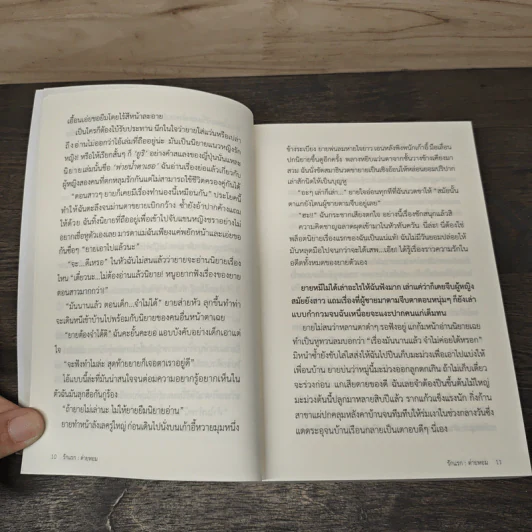 เอื้อนเอ่ยขอยืมโดยไร้สีหน้าละอาย
เป็นใครก็ต้องไปรับประทาน นึกในใจว่ายายใส่แว่นหรือเปล่า
ถึงอ่านไม่ออกว่าไอ้เล่มที่ถืออยู่น่ะ มันเป็นนิยายแนวหญิงรัก
หญิง! หรือให้เรียกสั้นๆ ก็ 'ยูริ' อย่างคำแสลงของญี่ปุ่นนั่นแหละ
นิยายเล่มนั้นชื่อ ฉันอ่านเรื่องย่อแล้วเกี่ยวกับ
ผู้หญิงสองคนที่ตกหลุมรักกันแต่ไม่สามารถใช้ชีวิตครองคู่กันได้
"ตอนสาวๆ ยายก็เคยมีเรื่องทำนองนี้เหมือนกัน" ประโยคนี้
ทำให้ฉันตะลึงจนม่านตาขยายเบิกกว้าง ซ้ำยังอ้าปากค้างแถม
ให้ด้วย ฉันทิ้งนิยายที่ถืออยู่เพื่อเข้าไปจับแขนหญิงชราอย่างไม่
อยากเชื่อหูตัวเองเลย มารดาแม่ฉันเพียงแค่พยักหน้าและเอ่ยขอ
ฉันซื่อๆ "ยายเอาไปแล้วนะ"
"จะ...ดีเหรอ" ในหัวฉันไม่สนแล้วว่ายายจะอ่านนิยายเรื่อง
ไหน "เดี๋ยวนะ...ไม่ต้องอ่านแล้วนิยาย! หนูอยากฟังเรื่องของยาย
ตอนสาวมากกว่า!"
"มันนานแล้ว ตอนเด็ก...จำไม่ได้" ยายส่ายหัว ลุกขึ้นทำท่า
จะเดินหนีเข้าบ้านไปพร้อมกับนิยายของคนอื่นหน้าตาเฉย
"ยายต้องจำได้ดิ" ฉันคะยั้นคะยอ แอบบังคับอย่างเด็กเอาแต่
ใจ
"จะฟังทำไมล่ะ สุดท้ายยายก็เจอตาเราอยู่ดี"
ไอ้แบบนี้ล่ะที่มันน่าสนใจจนต่อมความอยากรู้อยากเห็นใน
ตัวฉันมันลุกฮือกันรู้ร้อง
"ถ้ายายไม่เล่านะ ไม่ให้ยายยืมนิยายอ่าน"
ยายทำหน้าลังเลครู่ใหญ่ ก่อนเดินไปนั่งบนเก้าอี้หวายมุมหนึ่ง
10 รักแรก : ค่ายหอม
ข้างระเบียง ยายพ่นลมหายใจยาว เอนหลังพิงพนักเก้าอี้ มือเลื่อน
ปกนิยายขึ้นดูอีกครั้ง พลางหยิบแว่นตาจากชั้นวางข้างเคียงมา
สวม ฉันนั่งขัดสมาธิ
เล่าสักนิดให้เป็นบุญหู
"อะๆ เล่าก็เล่า..." ยายใจอ่อนทุกทีที่ฉันนวดขาให้ "สมัยนั้น
ตาแกยังโดนผู้ชายตามจีบอยู่เลย"
"ฮะ!!" ฉันกระชากเสียงตกใจ อย่างนี้เรื่องชักสนุกแล้วสิ
ความคิดชาญฉลาดผุดเข้ามาในหัวทันควัน นี่สรา! นี่ต้องใช่
พล็อตนิยายเรื่องแรกของฉันเป็นแน่แท้! ฉันไม่มีวันยอมปล่อยให้
มันหลุดมือไปจนกว่าจะได้เสพ...เอ๊ย! ได้รู้เรื่องราวความรักใน
อดีตทั้งหมดของยายตัวเอง
ยายหนีไม่ได้เล่าอะไรให้ฉันฟังมาก เล่าแค่ว่าก็เคยจีบผู้หญิง
สมัยยังสาว แถมเรื่องที่ผู้ชายมาตามจีบตาตอนหนุ่มๆ ก็ยังเล่า
แบบกำกวมจนฉันเหนื่อยจะแงะปากคนแก่เต็มทน
ยายไม่สนว่าหลานตาดำๆ รอฟังอยู่ แกก้มหน้าอ่านนิยายเฉย
ทำเป็นหูทวนลมบอกว่า "เรื่องมันนานแล้ว จำไม่ค่อยได้หรอก"
มิหน้าซ้ำยังขับไล่ไสส่งให้ฉันไปปีนเก็บมะม่วงเพื่อเอาไปแบ่งให้
เพื่อนบ้าน ยายบ่นว่าหมู่นี้มะม่วงออกลูกดกเกิน ถ้าไม่เก็บเดี๋ยว
จะร่วงก่อน แถมเสียดายของดี ฉันเลยจำต้องปีนขึ้นต้นไม้ใหญ่
มะม่วงต้นนี้ปลูกมาหลายสิบปีแล้ว รากแก้วแข็งแรงนัก กิ่งก้าน
สาขาแผ่ปกคลุมหลังคาบ้านจนทึบทึบให้ร่มเงาในช่วงกลางวันซึ่ง
แดดระอุจนบ้านเรือนกลายเป็นเตาอบดีๆ นี่เอง
รักแรก : ค่ายหอม 11